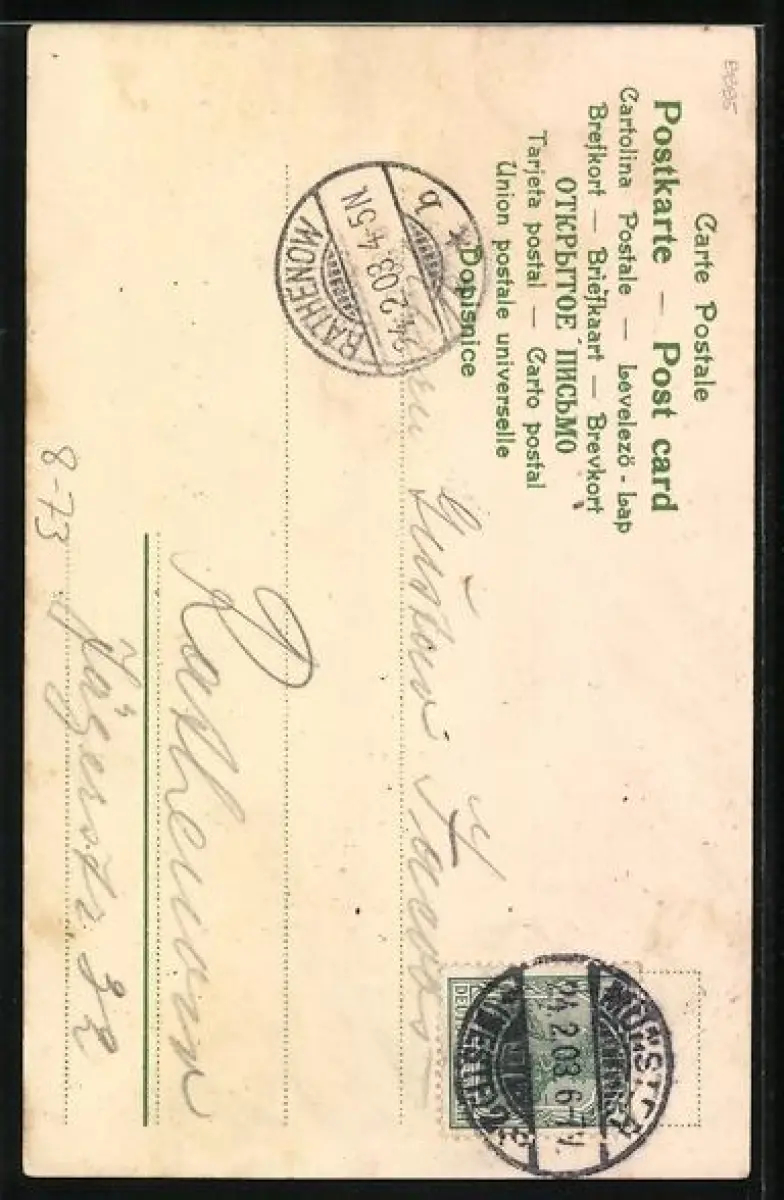 Carte Postale
Postkarte — Post card
Cartolina Postale — Levelező-Lap
Brefkort — Briefkaart — Brevkort
ОТКРЫТОЕ ПИСЬМО
Tarjeta postal — Carto postal
Union postale universelle
Dopisnice
MÜNSTER
24.2.03.6-7V.
(WESTF.)
DEUTSCHES
RATHENOW
24.2.03.4-5N
b
Gustav
Rathenow
Jägerstr.
8-73